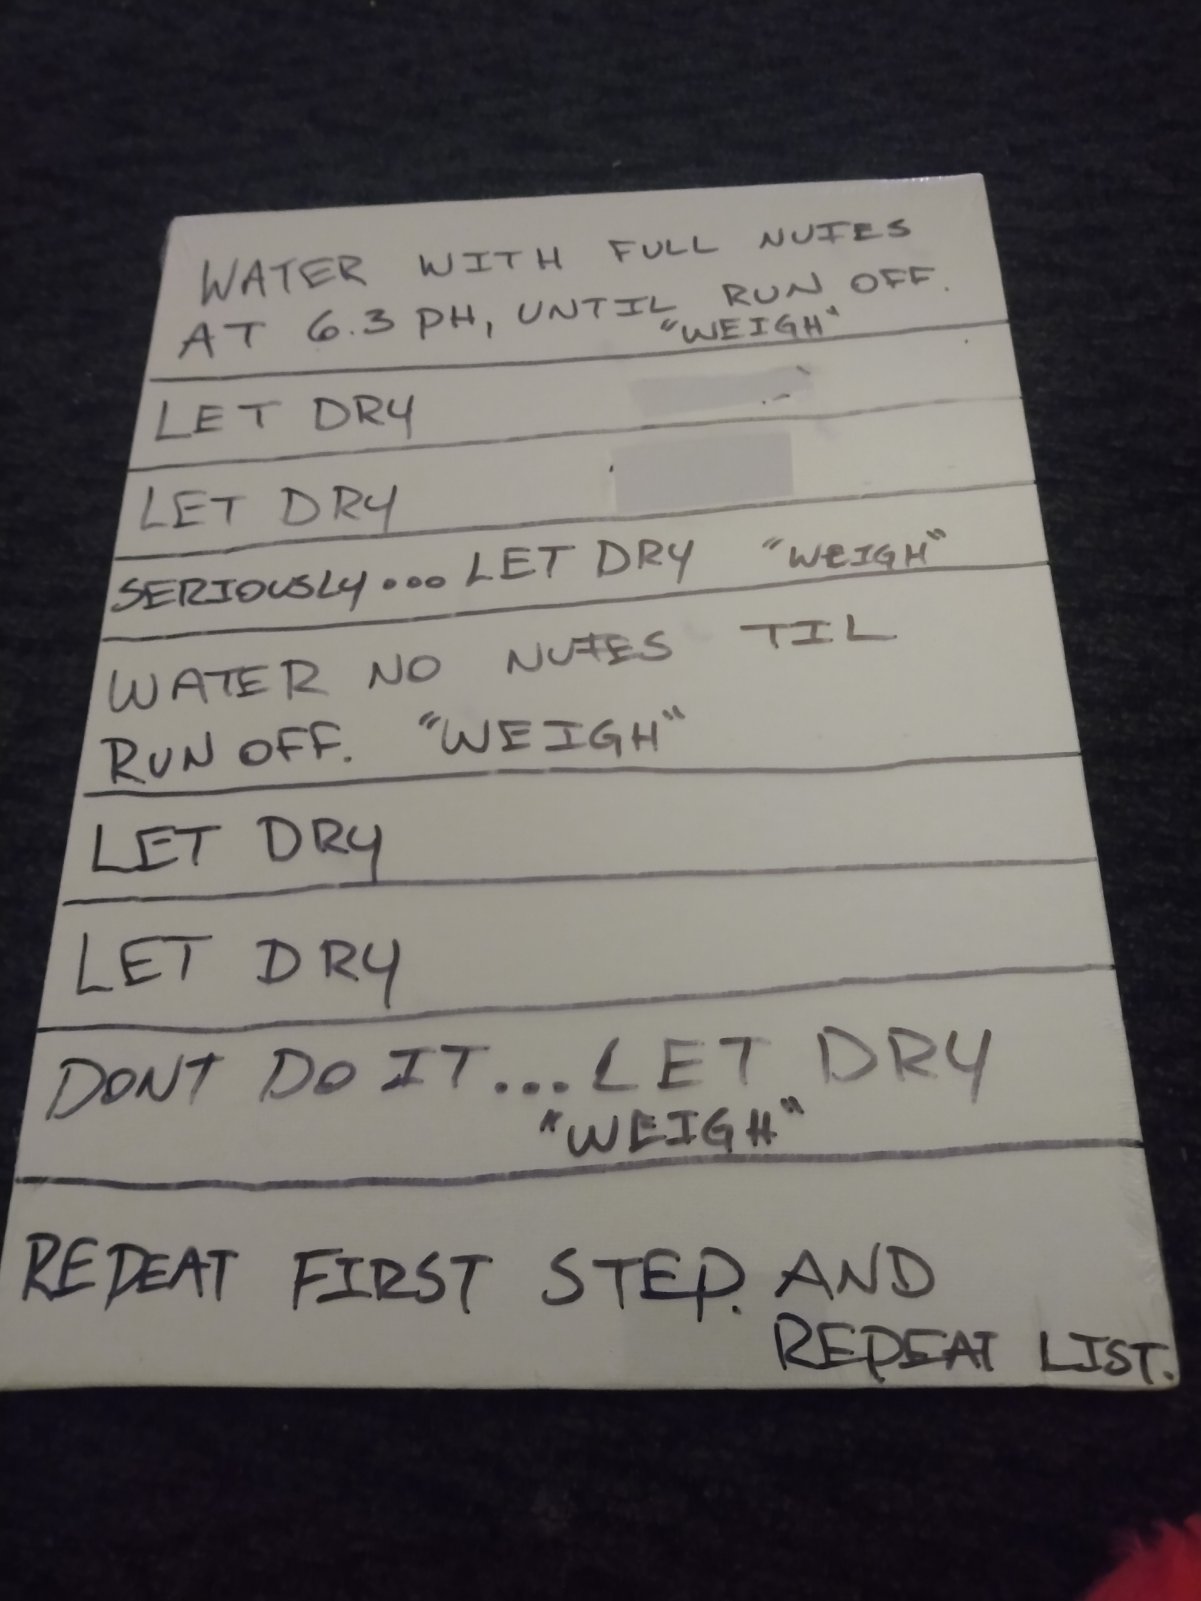 WATER WITH FULL NUTES
AT 6.3 PH, UNTIL RUN OFF.
"WEIGH"
LET DRY
LET DRY
SERIOUSLY... LET DRY "WEIGH"
WATER NO NUTES TIL
RUN OFF. "WEIGH"
LET DRY
LET DRY
DONT DO IT... LET DRY
"WEIGH"
REPEAT FIRST STEP. AND
REPEAT LIST.